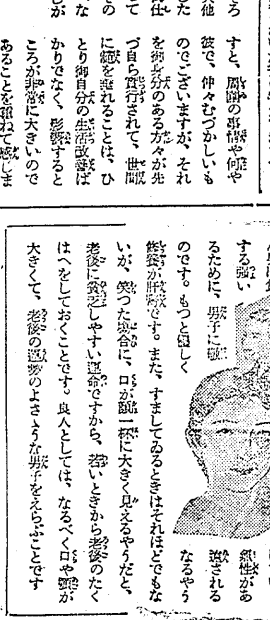 ろ
其他
した
責任
その
てゐ
な
しが
すと、周圍の事情や何や
彼で、仲々むづかしいも
のでございますが、それ
を御身分のある方々が先
づ自ら實行されて、世間
に範を垂れることは、ひ
とり御自分の生活改善ば
かりでなく、影響すると
ころが非常に大きいので
あることを重ねて感じま
する强い
るために、男子に
のです。もつと優しく
個性があ
される
なるやう
修養が肝腎です。また、すましてゐるときはそれほどでもな
いが、笑つた場合に、口が顏一杯に大きく見えるやうだと、
老後に貧乏しやすい運命ですから、若いときから老後のたく
はへをしておくことです。良人としては、なるべく口や顎が
大きくて、老後の運勢のよささうな男子をえらぶことです